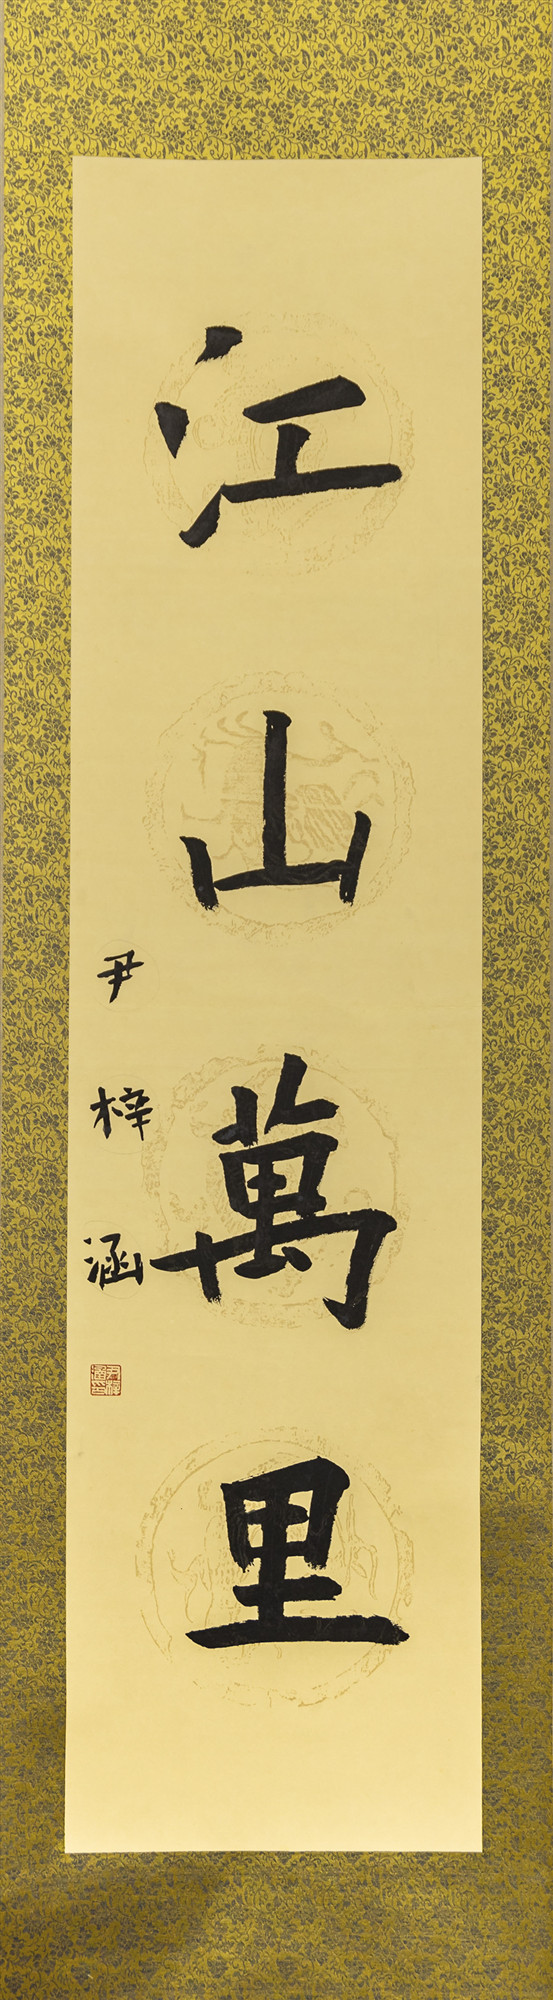 江山萬里
尹梓涵